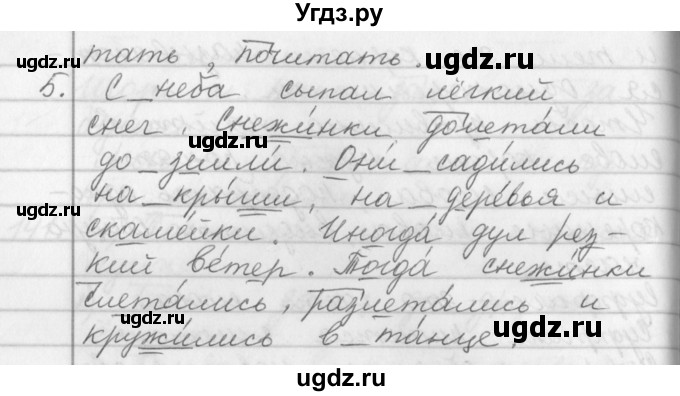 Угдз.ру
тать, почитать.
5. С_неба сыпал лёгкий
снег. Снежи́нки долета́ли
до_земли́. Они́_сади́лись
на_кры́ши, на_дере́вья и
скаме́йки. Иногда́ дул рез-
кий ве́тер. Тогда́ снежи́нки
слета́лись, разлета́лись и
кружи́лись в_та́нце.
ugdz.ru
ugdz.ru
ugdz.ru
ugdz.ru
ugdz.ru
ugdz.ru
ugdz.ru
ugdz.ru
ugdz.ru